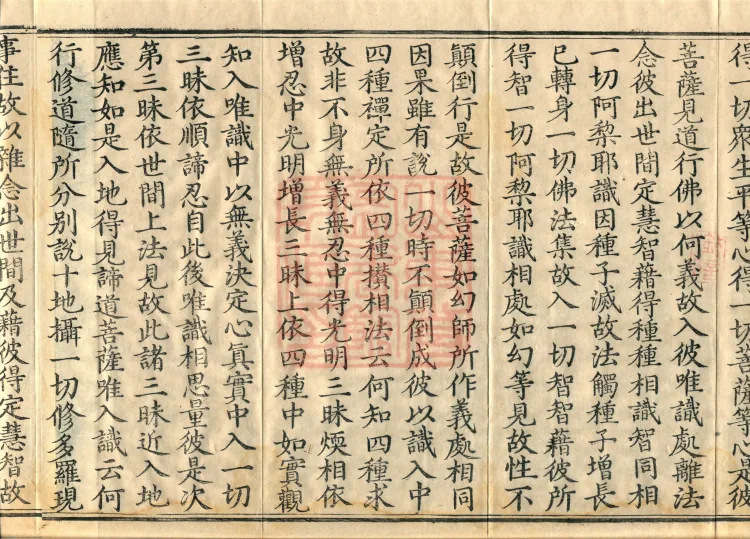 得一切衆生平等心得一切菩薩等心是彼
菩薩見道行佛以何義故入彼唯識處離法
念彼出世間定慧智藉得種種相識智同相
一切阿黎耶識因種子滅故法觸種子增長
已轉身一切佛法集故入一切智智藉彼所
得智一切阿黎耶識相處如幻等見故性不
顛倒行是故彼菩薩如幻師所作義處相同
因果雖有說一切時不顛倒成彼以識入中
四種禪定所依四種攢相法云何知四種求
故非不身無義無忍中得光明三昧煗相依
增忍中光明增長三昧上依四種中如實觀
知入唯識中以無義決定心眞實中入一切
三昧依順諦忍自此後唯識相思量彼是次
第三昧依世間上法見故此諸三昧近入地
應知如是入地得見諦道菩薩唯入識云何
行修道隨所分別說十地攝一切修多羅現
事住故以雜念出世間及藉彼得定慧智故